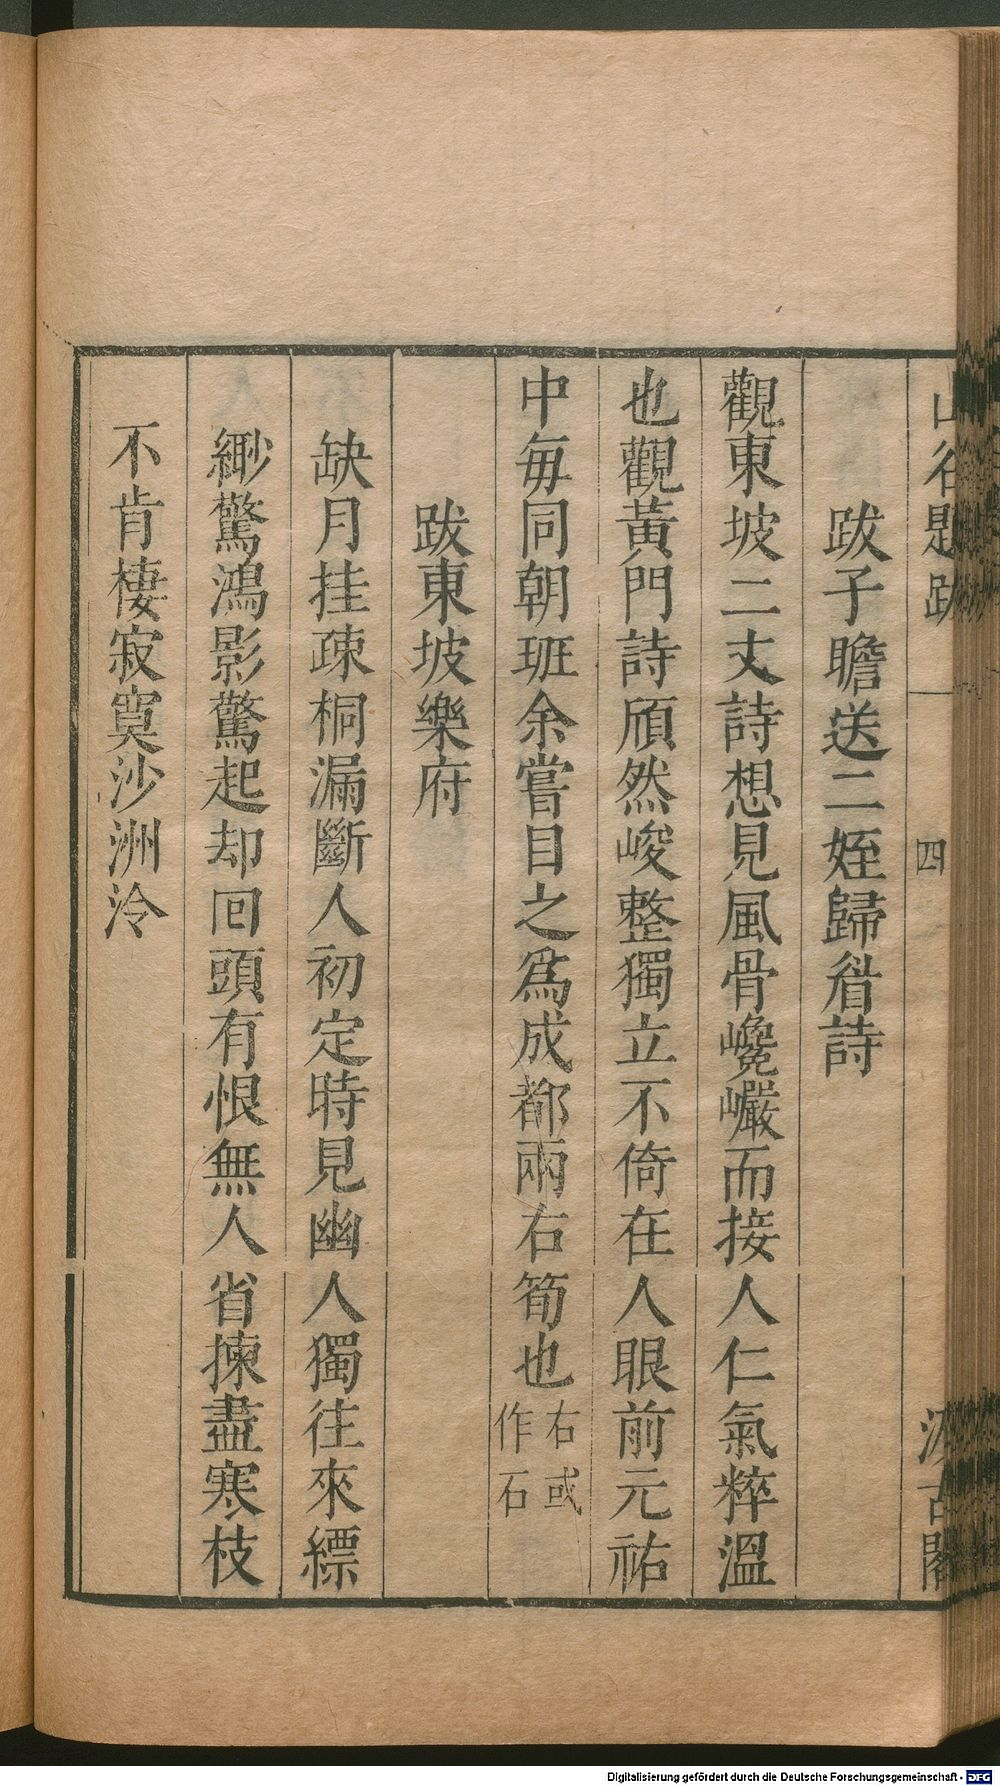 山谷題跋 四 汲古閣
跋子瞻送二姪歸眉詩
觀東坡二丈詩想見風骨巉巖而接人仁氣粹溫
也觀黃門詩頎然峻整獨立不倚在人眼前元祐
中每同朝班余嘗目之爲成都兩右筍也右或作石
跋東坡樂府
缺月挂疎桐漏斷人初定時見幽人獨往來縹
緲驚鴻影驚起却回頭有恨無人省揀盡寒枝
不肯棲寂寞沙洲泠
Digitalisierung gefördert durch die Deutsche Forschungsgemeinschaft - DFG